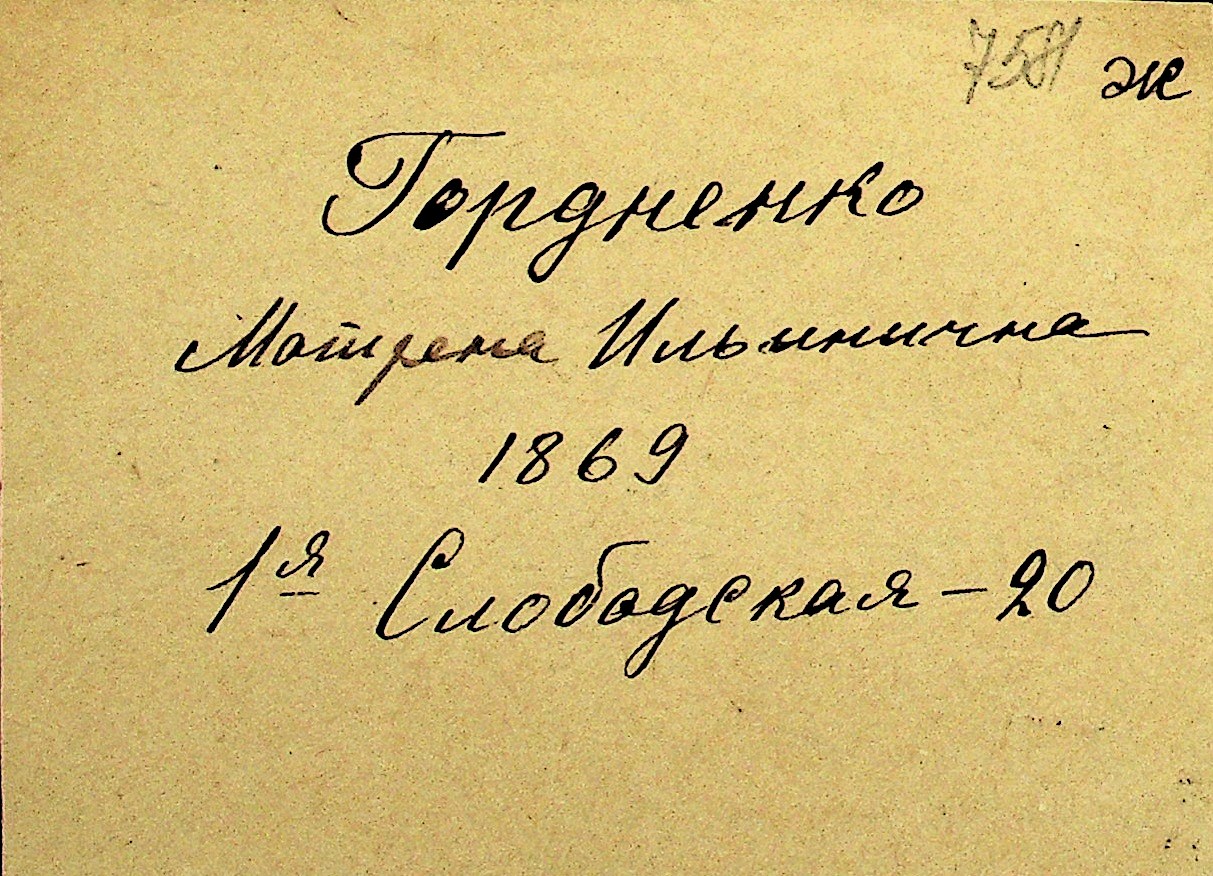 7581 ж
Гордненко
Матрена Ильинична
1869
1я Слободская - 20